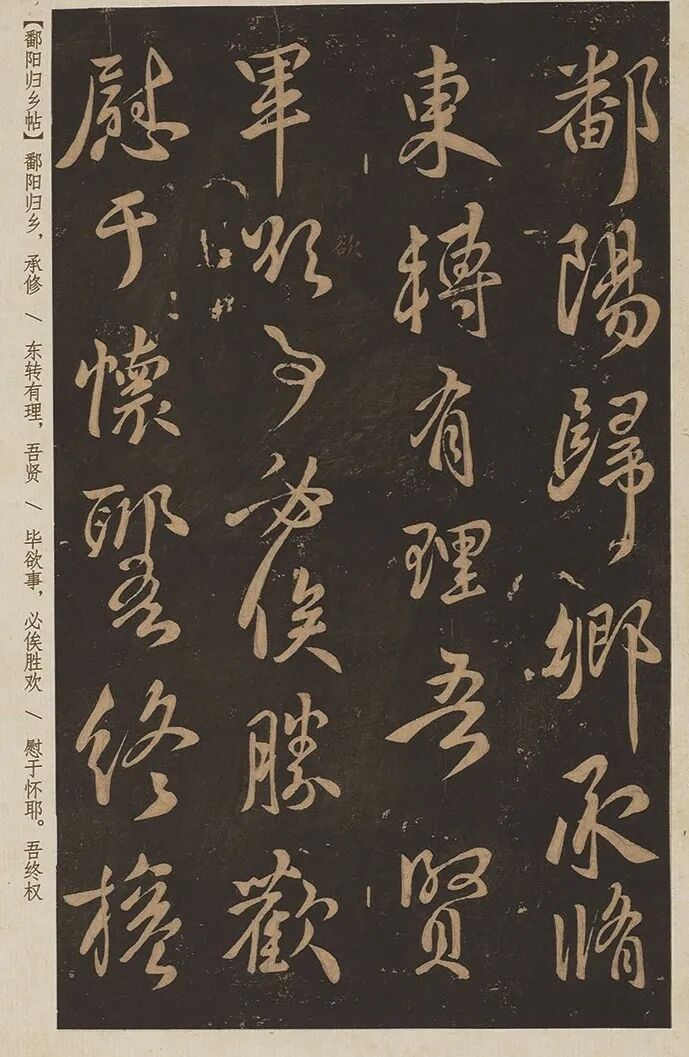 鄱陽歸鄉承脩
東轉有理吾賢
畢欲事必俟勝歡
慰于懷耶吾終權
欲
【鄱阳归乡帖】鄱阳归乡，承修 / 东转有理，吾贤 / 毕欲事，必俟胜欢 / 慰于怀耶。吾终权